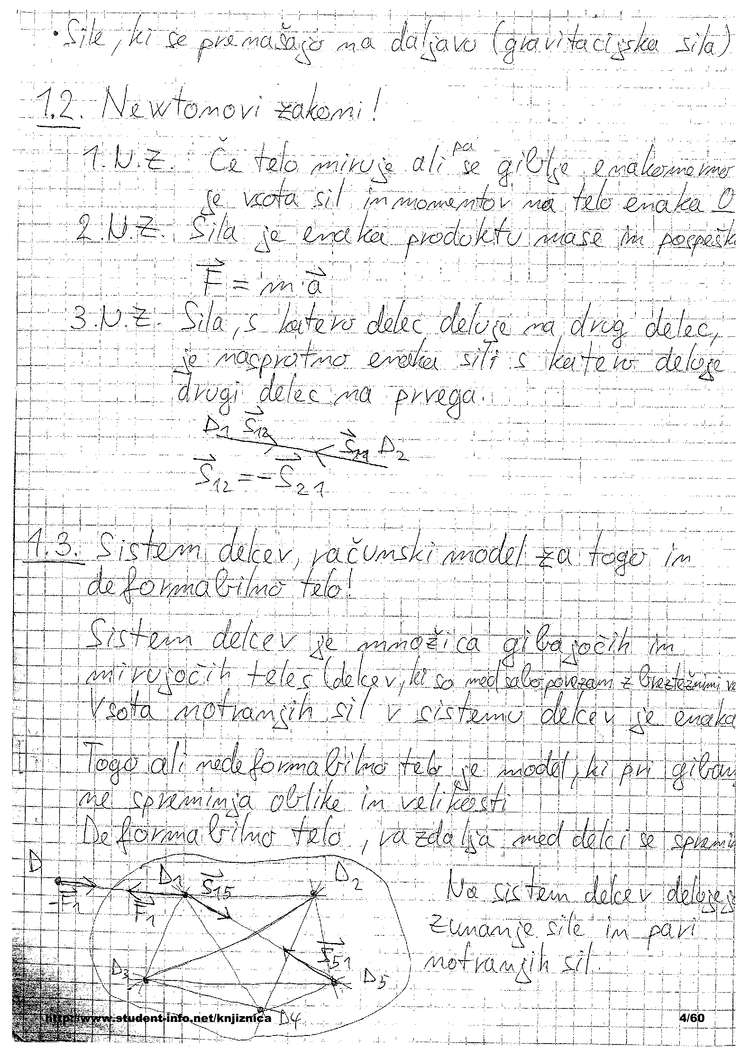 • Sile, ki se prenašajo na daljavo (gravitacijska sila)
1.2. Newtonovi zakoni!
1.N.Z. Če telo miruje ali pa se giblje enakomerno
je vsota sil in momentov na telo enaka 0
2.N.Z. Sila je enaka produktu mase in pospešk
F = m·a
3.N.Z. Sila, s katero delec deluje na drug delec,
je nasprotno enaka sili s katero deluje
drugi delec na prvega.
D1 S12 S21 D2
S12 = -S21
1.3. Sistem delcev, računski model za togo in
deformabilno telo!
Sistem delcev je množica gibajočih in
mirujočih teles (delcev, ki so med sabo povezani z breztežnimi ve
Vsota notranjih sil v sistemu delcev je enaka
Togo ali nedeformabilno telo je model, ki pri giban
ne spreminja oblike in velikosti
Deformabilno telo, razdalja med delci se spremin
D D1 S15 D2
-F1 F1
Na sistem delcev delujejo
zunanje sile in pari
notranjih sil.
S51
D3 D5
D4
http://www.student-info.net/knjiznica
4/60